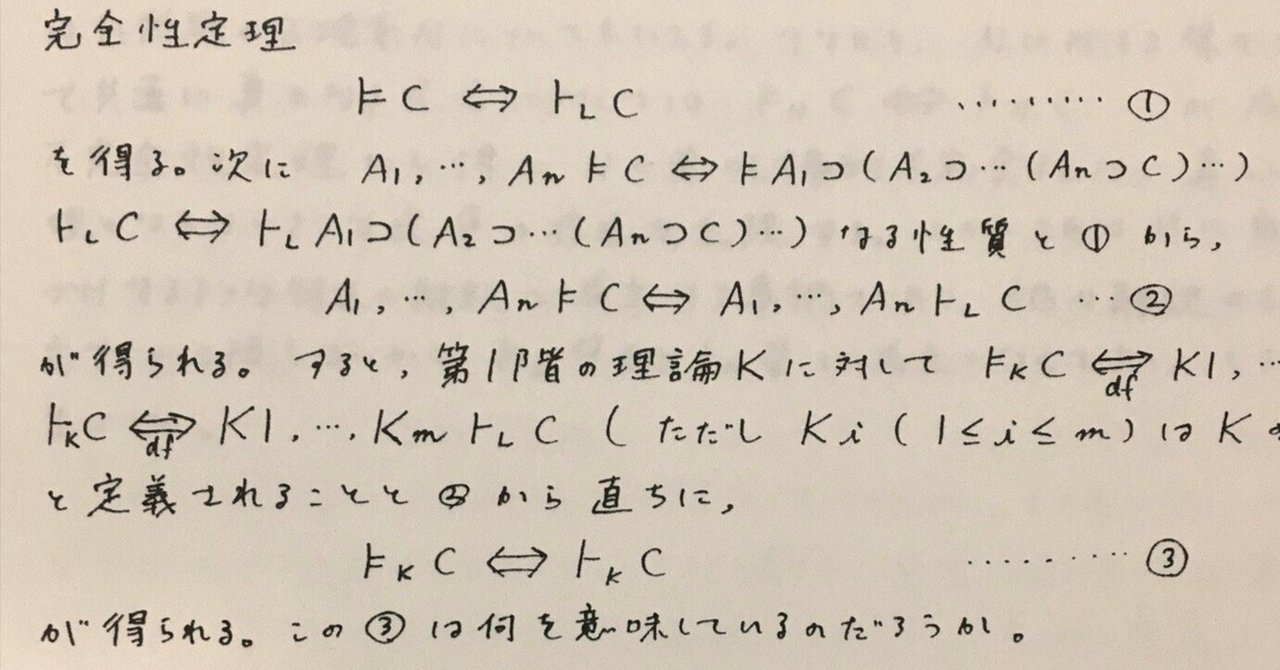 完全性定理
⊧ C ⇔ ⊢L C ········· ①
を得る。次に A1, …, An ⊧ C ⇔ ⊧ A1⊃(A2⊃…(An⊃C)…)
⊢L C ⇔ ⊢L A1⊃(A2⊃…(An⊃C)…) なる性質と①から,
A1, …, An ⊧ C ⇔ A1, …, An ⊢L C ··②
が得られる。すると, 第1階の理論Kに対して ⊧K C ⇔df K1, …
⊢K C ⇔df K1, …, Km ⊢L C ( ただし Ki (1≤i≤m) は K
と定義されることと②から直ちに,
⊧K C ⇔ ⊢K C ········ ③
が得られる。この③は何を意味しているのだろうか。